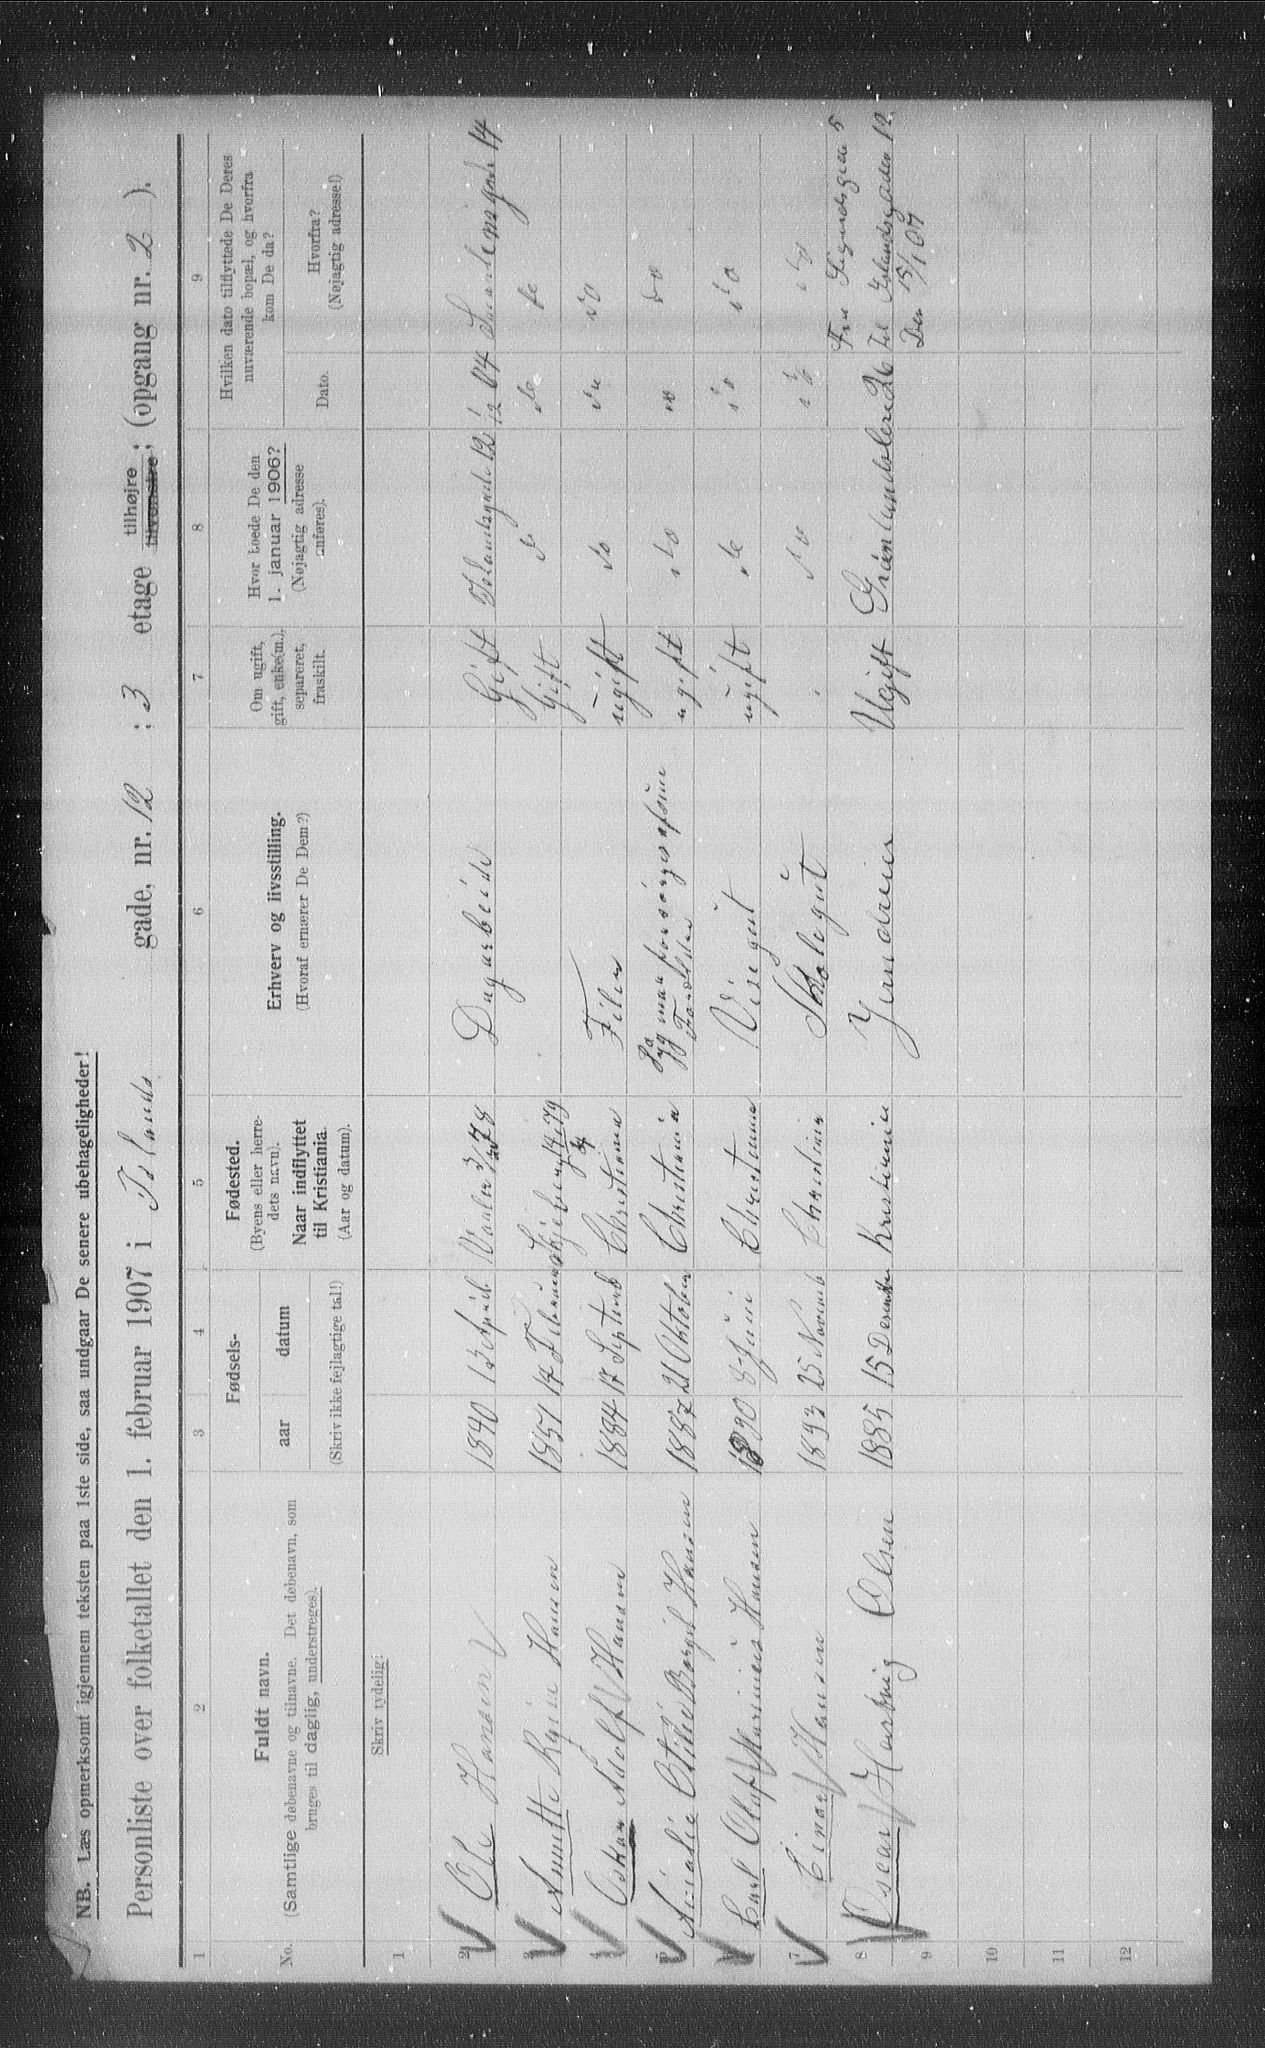 NB. Læs opmerksomt igjennem teksten paa 1ste side, saa undgaar De senere ubehageligheder!
Personliste over folketallet den 1. februar 1907 i Islands gade, nr. 12 : 3 etage tilhøjre tilvenstre; (opgang nr. 2 ).
1 2 3 4 5 6 7 8 9
No.
Fuldt navn.
(Samtlige døbenavne og tilnavne. Det døbenavn, som
bruges til daglig, understreges).
Fødsels-
aar datum
(Skriv ikke fejlagtige tal!)
Fødested.
(Byens eller herre-
dets navn).
Naar indflyttet
til Kristiania.
(Aar og datum).
Erhverv og livsstilling.
(Hvoraf ernærer De Dem?)
Om ugift,
gift, enke(m.),
separeret,
fraskilt.
Hvor boede De den
1. januar 1906?
(Nøjagtig adresse
anføres).
Hvilken dato tilflyttede De Deres
nuværende bopæl, og hvorfra
kom De da?
Dato.
Hvorfra?
(Nøjagtig adresse!)
Skriv tydelig!
1
2 Ole Hansen 1840 13 April Vaaler 78 Dagarbeide Gift Islandsgade 12 1/12 04 14
Annette Hansen 1851 17 Februar 79 Gift do do do
Oskar Adolf Hansen 1884 17 Septemb Christiania Filer ugift do do do
Amalie Otilie Borgil Hansen 1887 21 Oktober Christiania Syg man forsørges af sine Forældre ugift do do do
Carl Olaf Marinius Hansen 1890 8 Juni Christiania Visegut ugift do do do
7 Einar Hansen 1893 25 Novemb Christiania Skolegut do do do
8 Oscar Hartvig Olsen 1885 15 Desember Kristiania Jerndreier Ugift Grünlandsleret 26 Fra 5
til Islandsgaden 12
Den 15/1 07
9
10
11
12